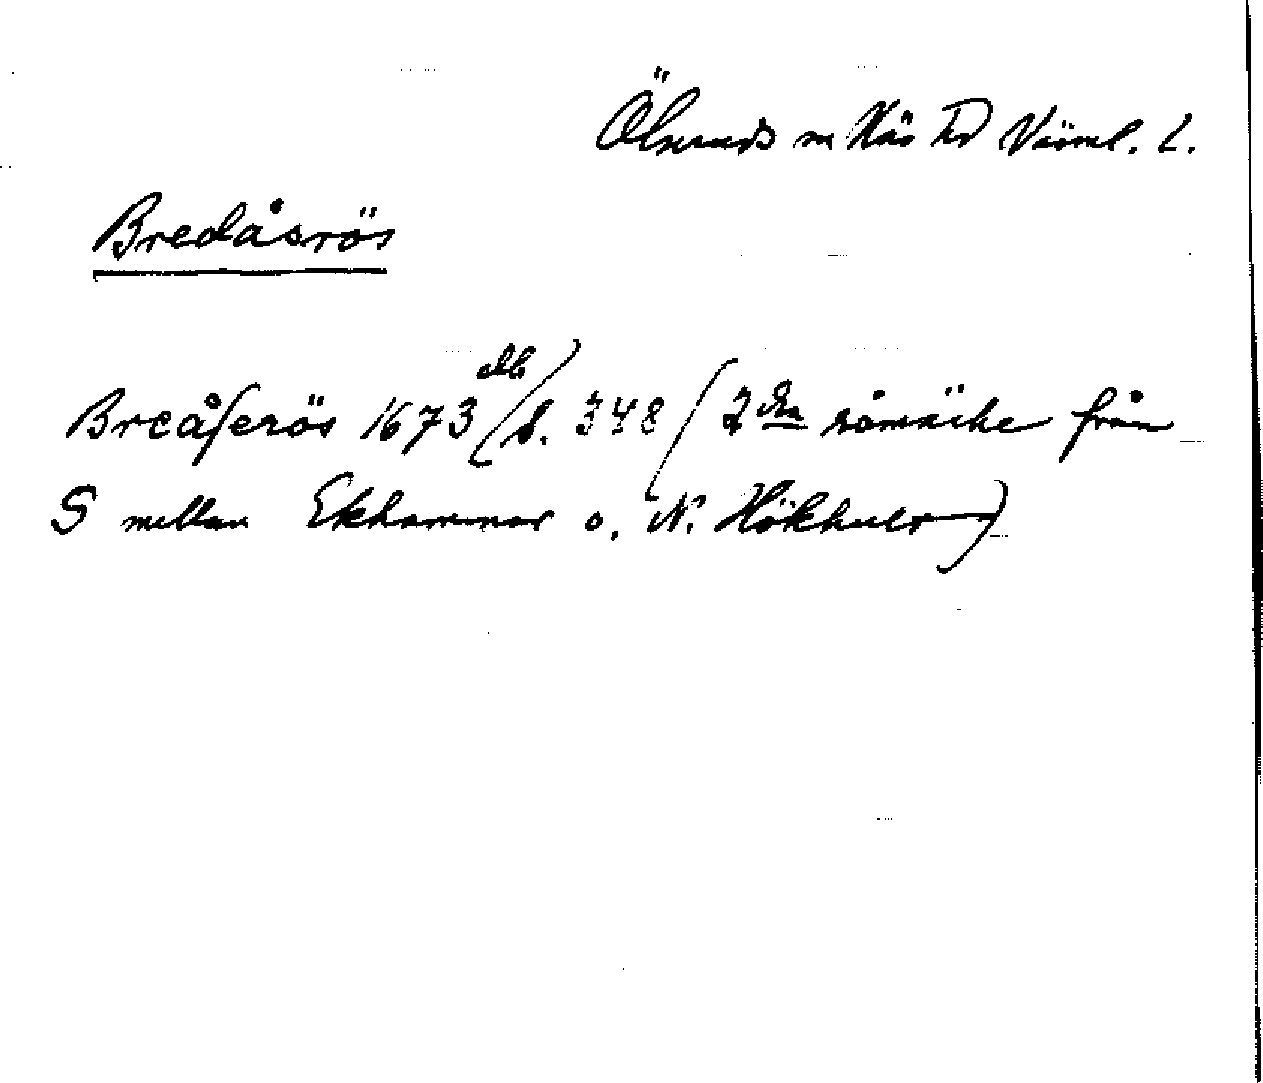 Ölseruds sn Näs hd Värml. l.
Bredåsrös
Breåſerös 1673 db s. 348 (2dra råmärke från
S mellan Ekhammar o. N. Hökhult)